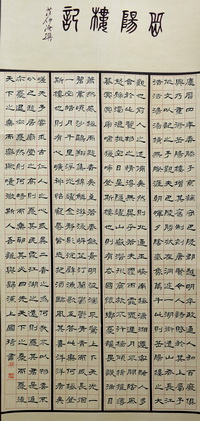 岳陽樓記
范仲淹撰
慶曆四年春滕子京謫守巴陵郡越明年政通人和百廢俱
興乃重修岳陽樓增其舊制刻唐賢今人詩賦於其上屬予
作文以記之予觀夫巴陵勝狀在洞庭一湖銜遠山吞長江
浩浩湯湯橫無際涯朝暉夕陰氣象萬千此則岳陽樓之大
觀也前人之述備矣然則北通巫峽南極瀟湘遷客騷人多
會於此覽物之情得無異乎若夫霪雨霏霏連月不開陰風
怒號濁浪排空日星隱耀山岳潛形商旅不行檣傾楫摧薄
暮冥冥虎嘯猿啼登斯樓也則有去國懷鄉憂讒畏譏滿目
蕭然感極而悲者矣至若春和景明波瀾不驚上下天光一
碧萬頃沙鷗翔集錦鱗游泳岸芷汀蘭郁郁青青而或長煙
一空皓月千里浮光躍金靜影沉璧漁歌互答此樂何極登
斯樓也則有心曠神怡寵辱偕忘把酒臨風其喜洋洋者矣
嗟夫予嘗求古仁人之心或異二者之為何哉不以物喜不
以己悲居廟堂之高則憂其民處江湖之遠則憂其君是進
亦憂退亦憂然則何時而樂耶其必曰先天下之憂而憂後
天下之樂而樂歟噫微斯人吾誰與歸